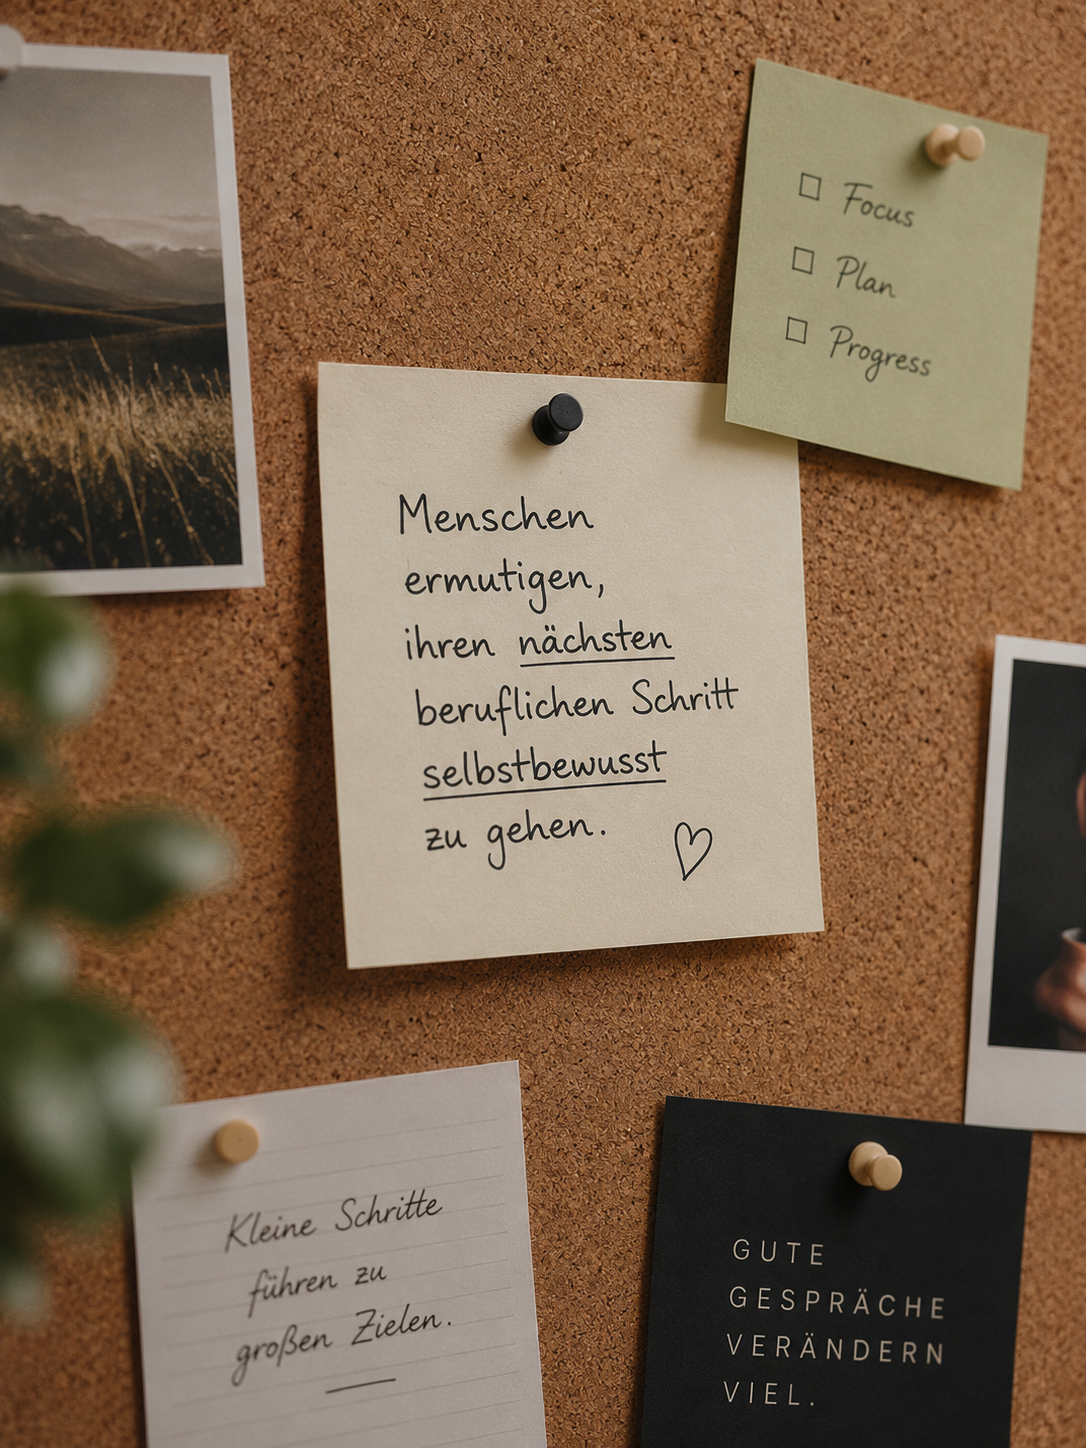 Focus
Plan
Progress
Menschen
ermutigen,
ihren nächsten
beruflichen Schritt
selbstbewusst
zu gehen.
Kleine Schritte
führen zu
großen Zielen.
GUTE
GESPRÄCHE
VERÄNDERN
VIEL.